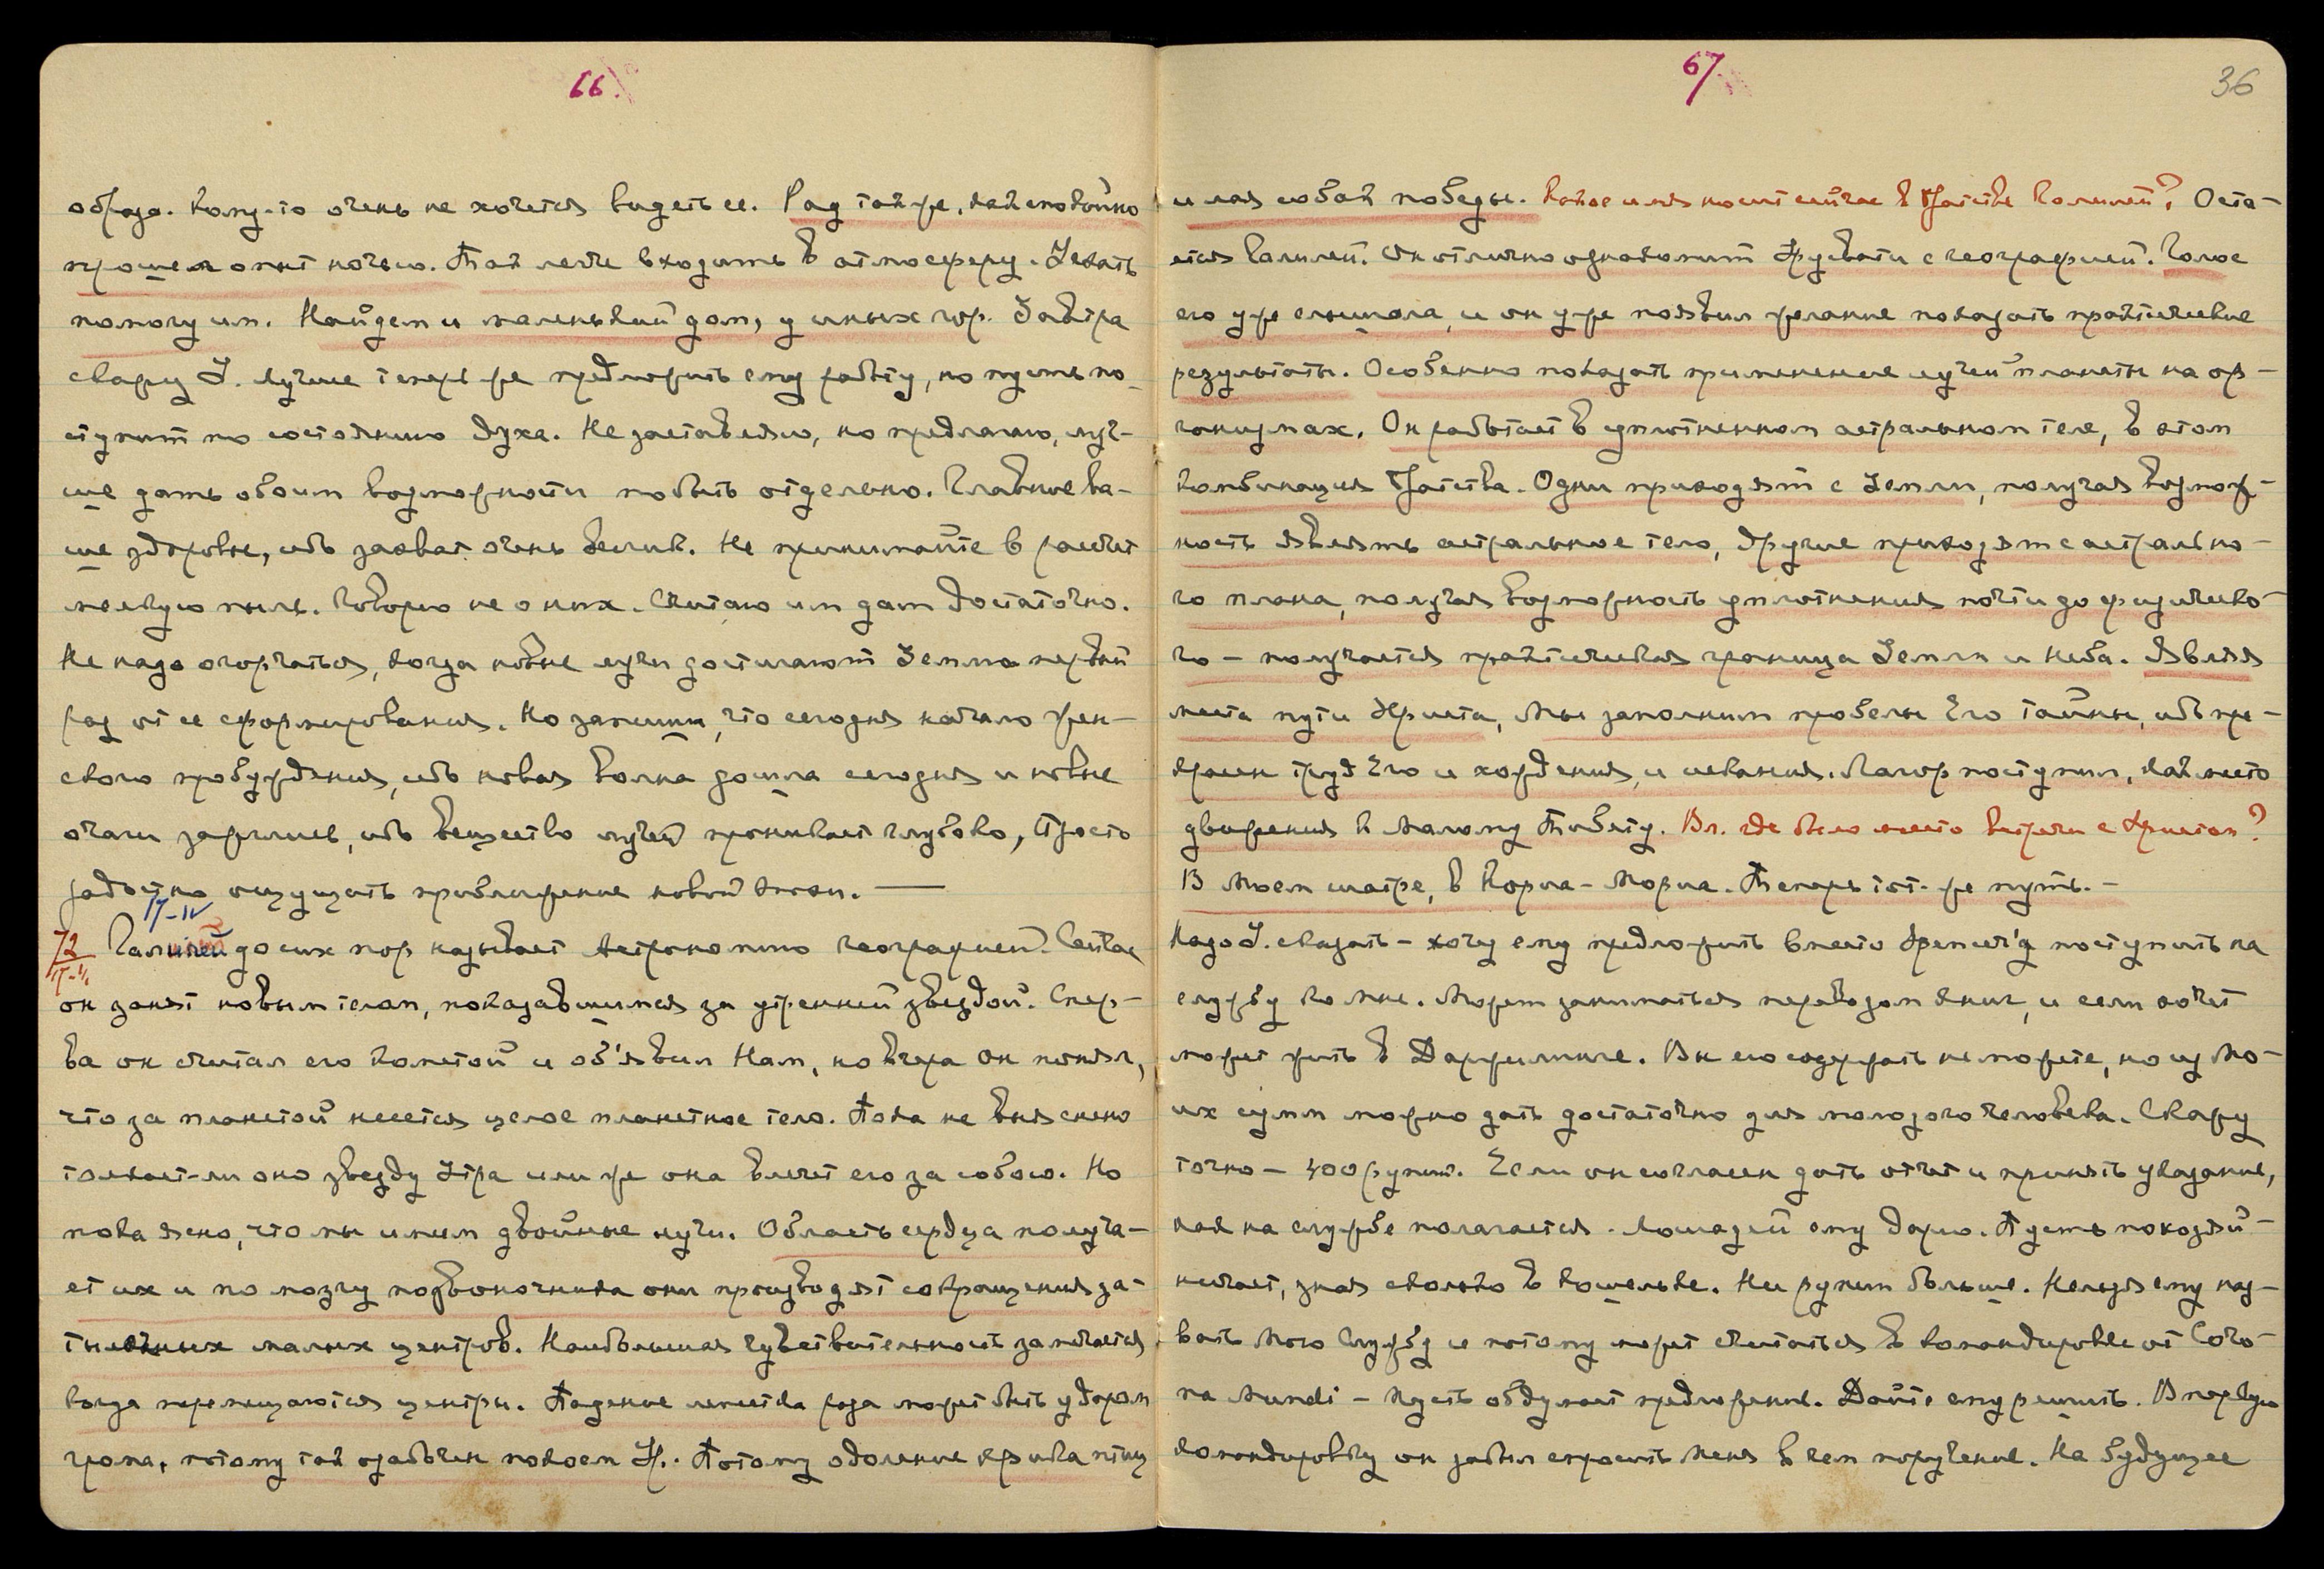 66.
образа. Кому-то очень не хочется видеть ее. Рад также, как спокойно
прошел опыт ночью. Так легче входить в атмосферу. Уехать
помогу им. Найдем и маленький дом, у иных гор. Завтра
скажу Я. лучше теперь же предложить ему работу, но пусть по-
ступит по состоянию духа. Не заставляю, но предлагаю, луч-
ше дать обоим возможности побыть отдельно. Главное ва-
ше здоровье, ибо захват очень велик. Не принимайте в расчет
мелкую пыль. Говорю не о них. Считаю им дам достаточно.
Не надо огорчаться, когда новые лучи достигают Земли первый
раз от ее сформирования. Но запиши, что сегодня начало жен-
ского пробуждения, ибо новая волна дошла сегодня и новые
очаги зажглись, ибо вещество лучей проникает глубоко, Просто
радостно ощущать приближение новой эпохи. —
17-IV
72 Галилей до сих пор называет Астрономию Географией. Сейчас
он занят новым телом, показавшимся за утренней звездой. Спер-
ва он считал его кометой и об'явил Нам, но вчера он понял,
что за планетой несется целое планетное тело. Пока не выяснено
толкает-ли оно звезду Утра или же она влечет его за собою. Но
пока ясно, что мы имеем двойные лучи. Область сердца получа-
ет их и по мозгу позвоночника они производят сокращения за-
тылочных малых центров. Наибольшая чувствительность замечается
когда перемещаются центры. Падение лепестка розы может быть ударом
грома, потому так озабочен покоем У.. Потому одоление крика птиц
67.
36
и лая собак победы. Какое имя носит сейчас в Братстве Галилей? Оста-
ется Галилей. Он отлично ознакомит Друзвати с географией. Голос
его уже слышала, и он уже появил желание показать практические
результаты. Особенно показать применение лучей планеты на ор-
ганизмах. Он работает в уплотненном астральном теле, в этом
комбинация Братства. Одни приходят с Земли, получая возмож-
ность являть астральное тело, другие приходят с астрально-
го плана, получая возможность уплотнения почти до физическо-
го — получается практическая граница Земли и Неба. Являя
места пути Христа, Мы заполним пробелы Его тайны, ибо пре-
красен труд Его и хождения, и искания. Лагор поступил, как место
движения к Малому Тибету. Вл. где было место встречи с Христом?
В Моем шатре, в Кориа-Мориа. Теперь тот-же путь. —
Надо Я. сказать — хочу ему предложить вместо поступить на
службу ко Мне. Может заниматься переводом книг, и если хочет
может жить в Дарджилинге. Вы его содержать не можете, но из Мо-
их сумм можно дать достаточно для молодого человека. Скажу
точно — 400 рупий. Если он согласен дать отчет и принять указание,
как на службе полагается. Лошадей ему дарю. Пусть похозяй-
ничает, зная сколько в кошельке. Ни рупии больше. Нельзя ему наз-
вать Мою Службу и потому может считаться в командировке от Coro-
na Mundi — пусть обдумает предложение. Дайте ему решить. В первую
командировку он забыл спросить Меня в чем поручение. На будущее